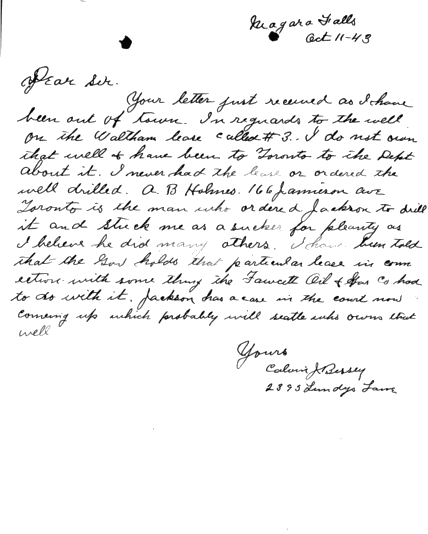 Niagara Falls
Oct 11-43
Dear Sir.
Your letter just received as I have
been out of town. In reguards to the well
on the Waltham lease called # 3. I do not own
that well & have been to Toronto to the Dept
about it. I never had the lease or ordered the
well drilled. A. B Holmes. 166 Jamieson ave
Toronto is the man who ordered Jackson to drill
it and stuck me as a sucker for pleanty as
I believe he did many others. I have been told
that the Gov holds that particular lease in con
ection with some thing the Fawcett Oil & Gas Co had
to do with it. Jackson has a case in the court now
comeing up which probably will seatle who owns that
well
Yours
Calvin J Bissey
2895 Lundys Lane